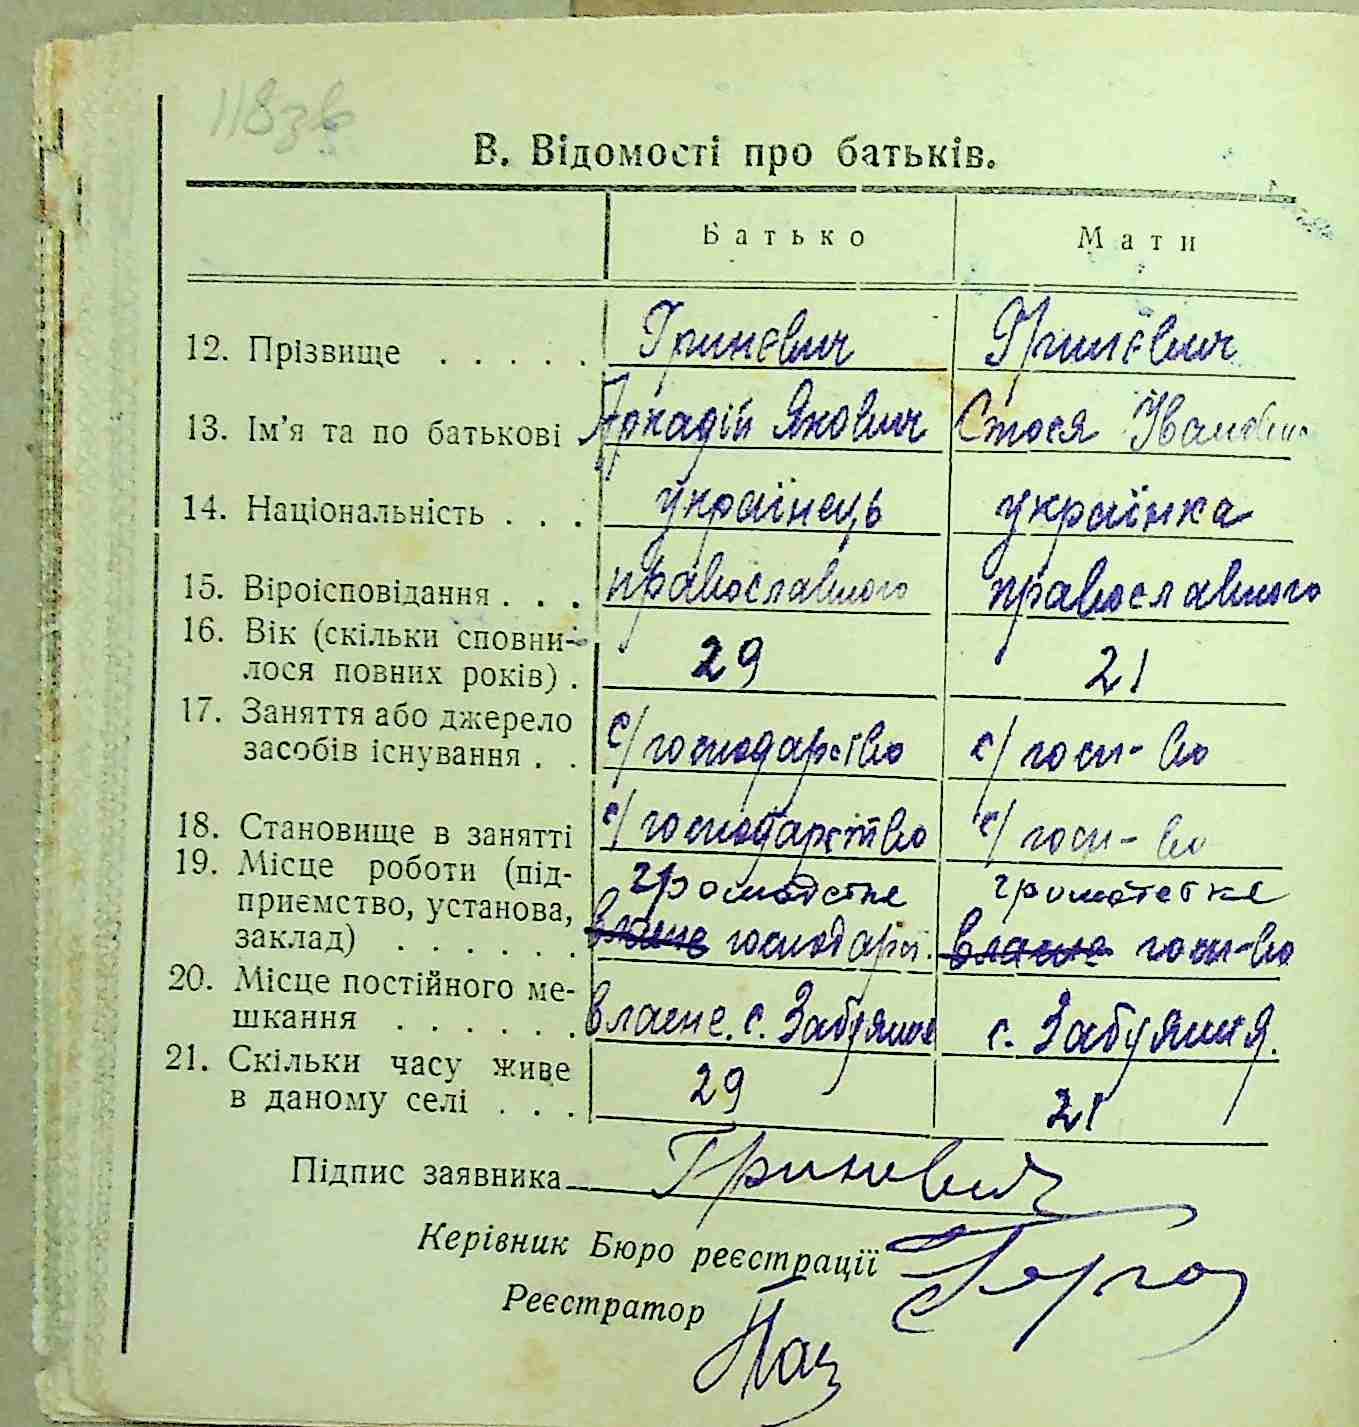 118зв
В. Відомості про батьків.
Батько Мати
12. Прізвище . . . . . Гриневич Гриневич
13. Ім'я та по батькові Аркадій Якович Стося
14. Національність . . . українець українка
15. Віроісповідання . . . православного православного
16. Вік (скільки сповни-
лося повних років) . 29 21
17. Заняття або джерело
засобів існування . . с/господарство с/госп-во
18. Становище в занятті с/господарство с/госп-во
19. Місце роботи (під-
приємство, установа, громадське
заклад) . . . . . . власне господарст. власне госп-во
20. Місце постійного ме-
шкання . . . . . . власне. с. Забуяння с. Забуяння.
21. Скільки часу живе
в даному селі . . . 29 21
Підпис заявника Гриневич
Керівник Бюро реєстрації
Реєстратор